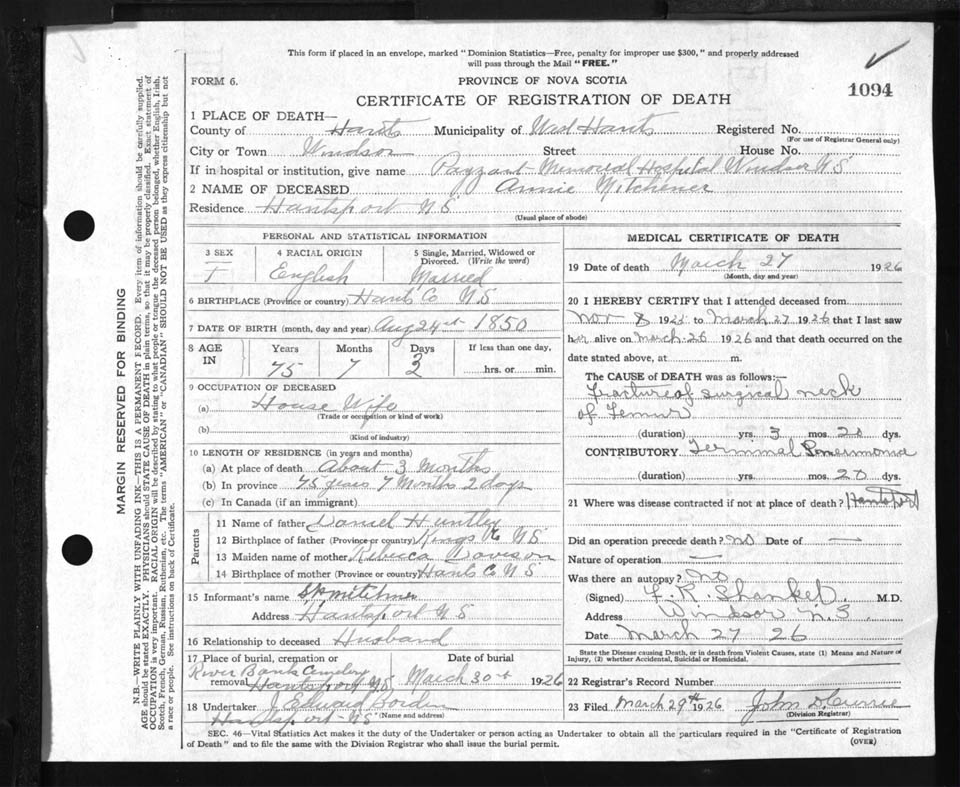 This form if placed in an envelope, marked "Dominion Statistics—Free, penalty for improper use $300," and properly addressed
will pass through the Mail "FREE."
FORM 6.
PROVINCE OF NOVA SCOTIA
1094
CERTIFICATE OF REGISTRATION OF DEATH
1 PLACE OF DEATH—
County of Hants Municipality of West Hants Registered No.
(For use of Registrar General only)
City or Town Windsor Street House No.
If in hospital or institution, give name Payzant Memorial Hospital Windsor N S
2 NAME OF DECEASED Annie Mitchener
Residence Hantsport N S
(Usual place of abode)
PERSONAL AND STATISTICAL INFORMATION
3 SEX 4 RACIAL ORIGIN 5 Single, Married, Widowed or
Divorced. (Write the word)
F English Married
6 BIRTHPLACE (Province or country) Hants Co N S
7 DATE OF BIRTH (month, day and year) Aug 24th 1850
8 AGE IN Years Months Days If less than one day,
75 7 3 hrs. or min.
9 OCCUPATION OF DECEASED
(a) House Wife
(Trade or occupation or kind of work)
(b)
(Kind of industry)
10 LENGTH OF RESIDENCE (in years and months)
(a) At place of death About 3 Months
(b) In province 75 years 7 Months 2 days
(c) In Canada (if an immigrant)
Parents
11 Name of father Daniel Huntley
12 Birthplace of father (Province or country) Kings Co N S
13 Maiden name of mother Rebecca Davison
14 Birthplace of mother (Province or country) Hants Co N S
15 Informant's name Mitchner
Address Hantsport N S
16 Relationship to deceased Husband
17 Place of burial, cremation or Date of burial
River Bank Cemetery
removal Hantsport N S March 30th 1926
18 Undertaker J Edward Borden
Hantsport N S (Name and address)
MEDICAL CERTIFICATE OF DEATH
19 Date of death March 27 1926
(Month, day and year)
20 I HEREBY CERTIFY that I attended deceased from
Nov 8 1925 to March 27 1926 that I last saw
her alive on March 26 1926 and that death occurred on the
date stated above, at m.
The CAUSE OF DEATH was as follows:—
Fracture of surgical neck
of Femur
(duration) yrs. 3 mos. 20 dys.
CONTRIBUTORY Terminal Pneumonia
(duration) yrs. mos. 20 dys.
21 Where was disease contracted if not at place of death? Hantsport
Did an operation precede death? no Date of —
Nature of operation —
Was there an autopsy? no
(Signed) F. R. Shankel M.D.
Address Windsor N.S
Date March 27 26
State the Disease causing Death, or in death from Violent Causes, state (1) Means and Nature of
Injury, (2) whether Accidental, Suicidal or Homicidal.
22 Registrar's Record Number
23 Filed March 29th 1926 John D. Currie
(Division Registrar)
SEC. 46—Vital Statistics Act makes it the duty of the Undertaker or person acting as Undertaker to obtain all the particulars required in the "Certificate of Registration
of Death" and to file the same with the Division Registrar who shall issue the burial permit.
(OVER)
MARGIN RESERVED FOR BINDING
N.B.—WRITE PLAINLY WITH UNFADING INK—THIS IS A PERMANENT RECORD. Every item of information should be carefully supplied.
AGE should be stated EXACTLY. PHYSICIANS should STATE CAUSE OF DEATH in plain terms, so that it may be properly classified. Exact statement of
OCCUPATION is very important. RACIAL ORIGIN will be described by stating to what people or tongue the deceased person belonged, whether English, Irish,
Scotch, French, German, Russian, Ruthenian, etc. The terms "AMERICAN" or "CANADIAN" SHOULD NOT BE USED as they express citizenship but not
a race or people. See instructions on back of Certificate.